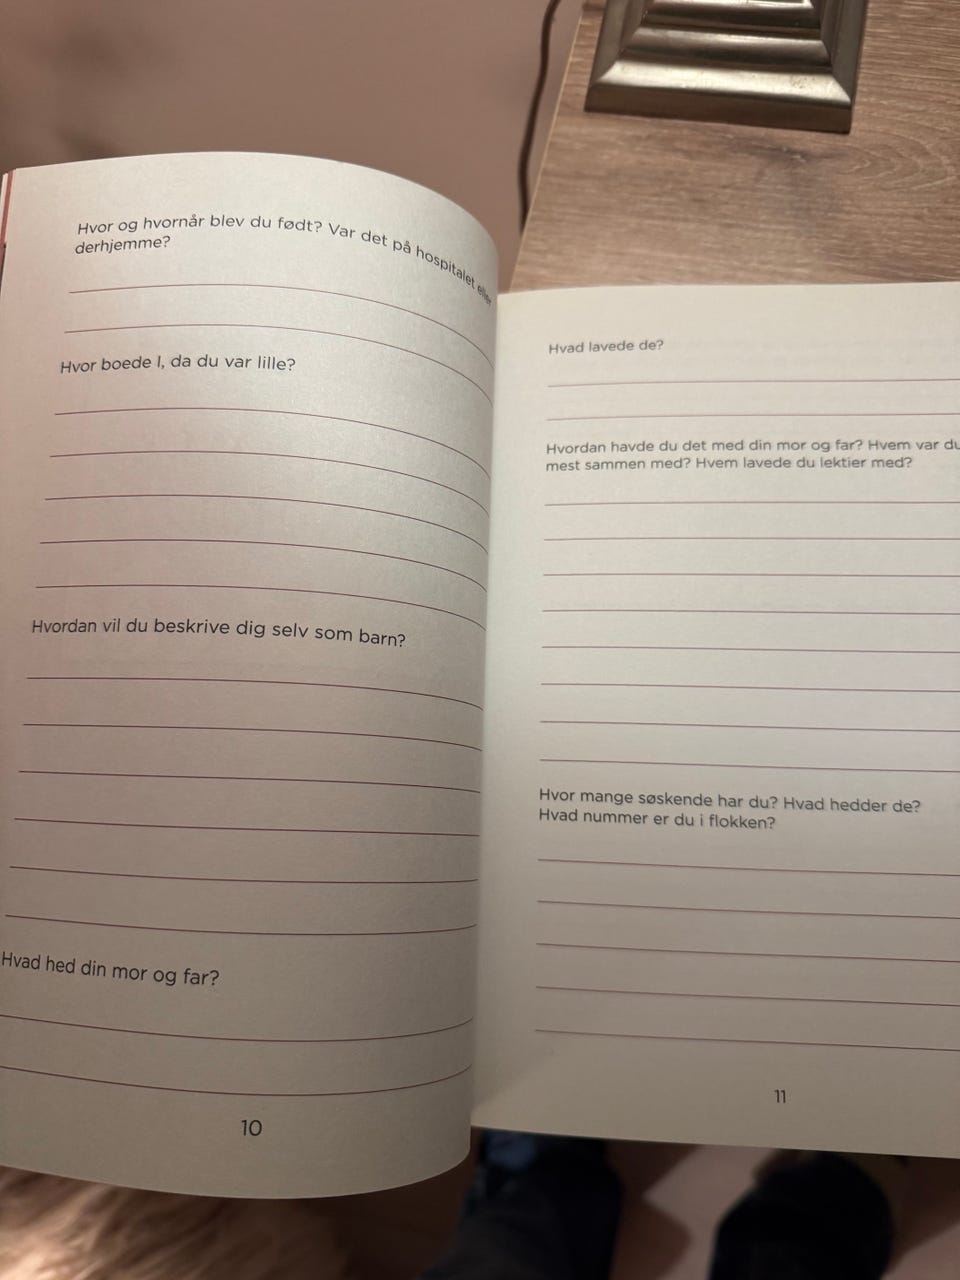 Hvor og hvornår blev du født? Var det på hospitalet eller
derhjemme?
Hvor boede I, da du var lille?
Hvordan vil du beskrive dig selv som barn?
Hvad hed din mor og far?
10
Hvad lavede de?
Hvordan havde du det med din mor og far? Hvem var du
mest sammen med? Hvem lavede du lektier med?
Hvor mange søskende har du? Hvad hedder de?
Hvad nummer er du i flokken?
11